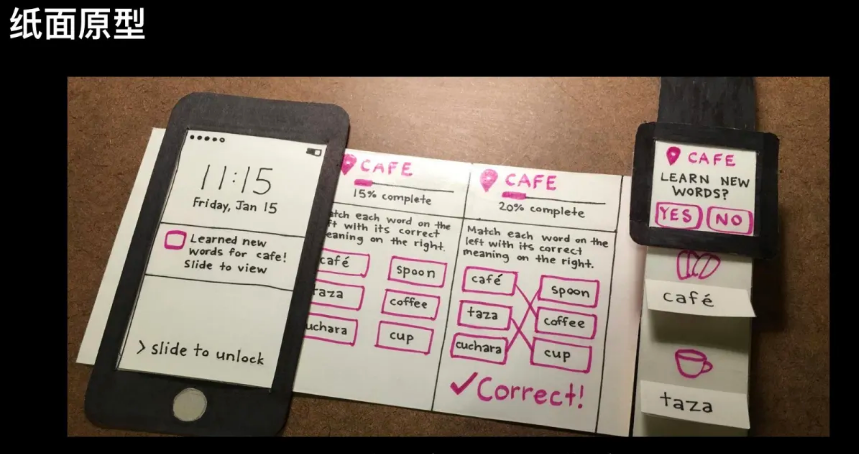 纸面原型
11:15
Friday, Jan 15
Learned new
words for cafe!
Slide to view
> slide to unlock
CAFE
15% complete
atch each word on the
ft with its correct
eaning on the right.
café
spoon
aza
coffee
uchara
cup
CAFE
20% complete
Match each word on the
left with its correct
meaning on the right.
café
spoon
taza
coffee
cuchara
cup
✓Correct!
CAFE
LEARN NEW
WORDS?
YES
NO
café
taza